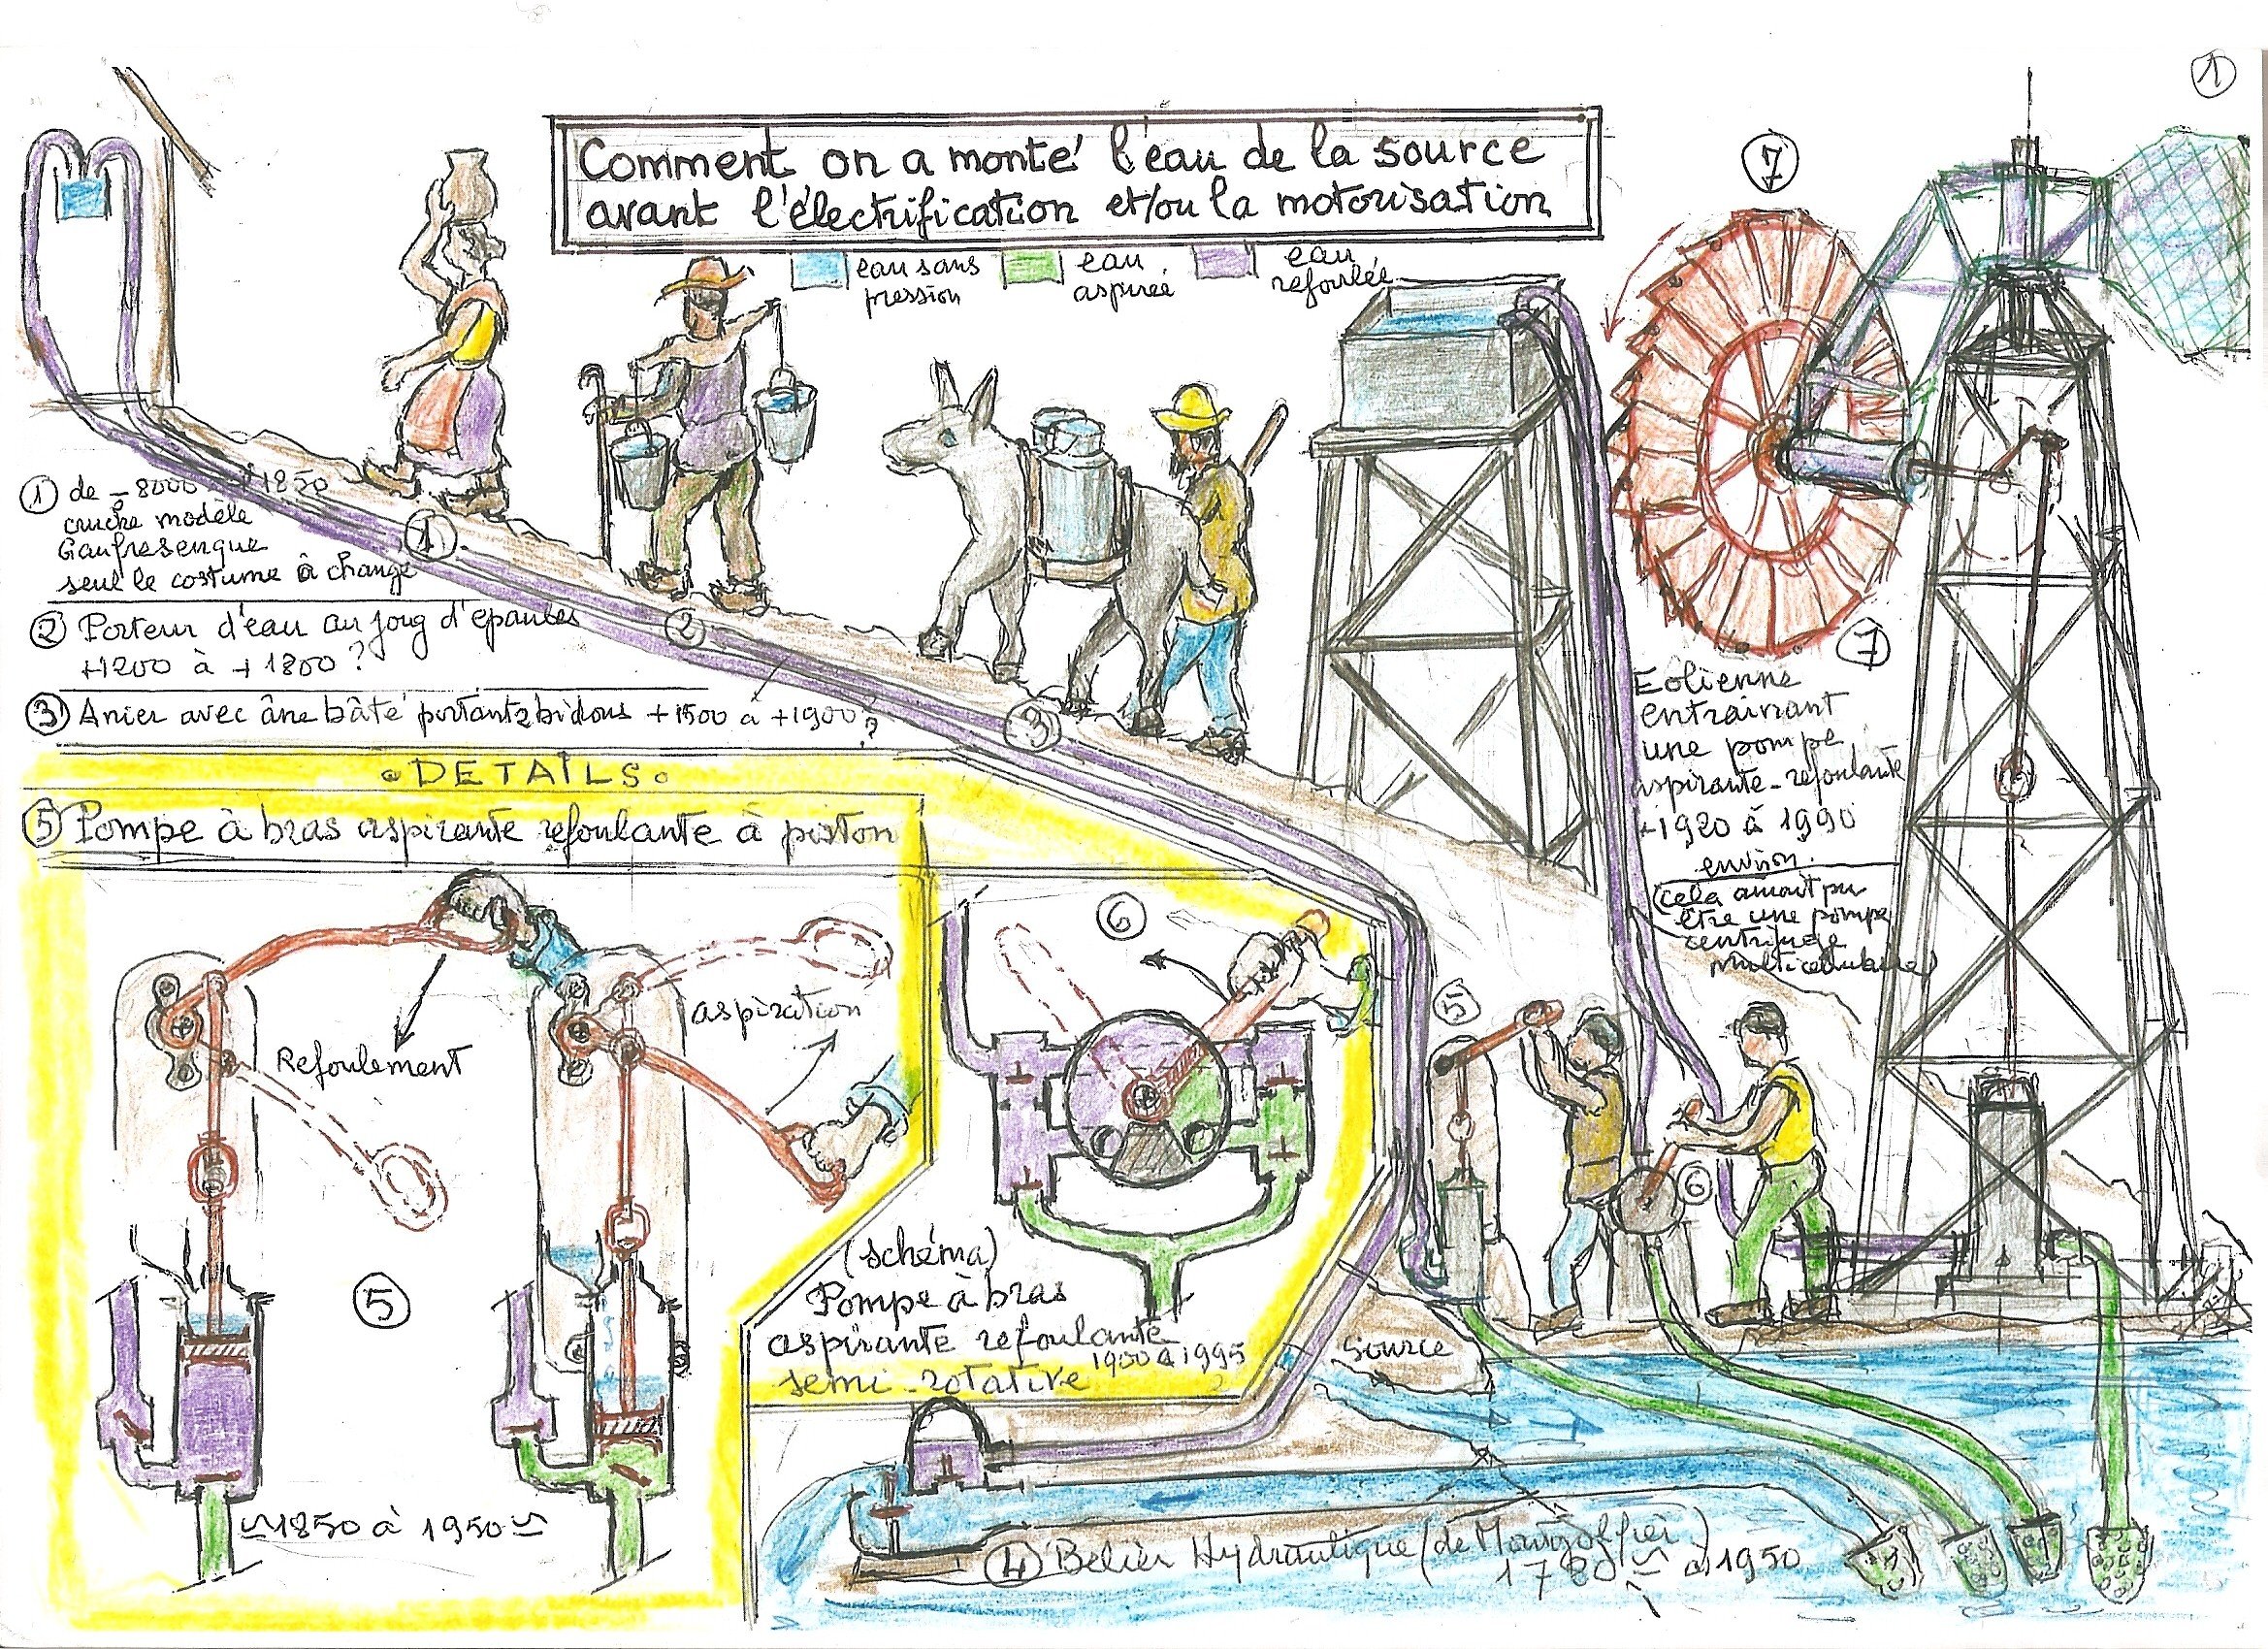 1
Comment on a monté l'eau de la source
avant l'électrification et/ou la motorisation
eau sans
pression
eau
aspirée
eau
refoulée
7
① de -8000 à +1850
cruche modèle
Gaufresenque
seul le costume à changé
② Porteur d'eau au joug d'epaules
+1200 à +1800 ?
③ Anier avec âne bâté portant 2 bidons +1500 à +1900 ?
1
2
3
7
Eolienne
entrainant
une pompe
aspirante-refoulante
+1920 à 1990
environ.
cela aurait pu
être une pompe
centrifuge
multicellulaire
DETAILS
⑤ Pompe à bras aspirante refoulante à piston
Refoulement
aspiration
5
≃1850 à 1950≃
6
(schéma)
Pompe à bras
aspirante refoulante
semi-rotative 1900 à 1995
5
6
Source
④ Belier Hydraulique (de Mongolfier)
1780 ≃ à 1950